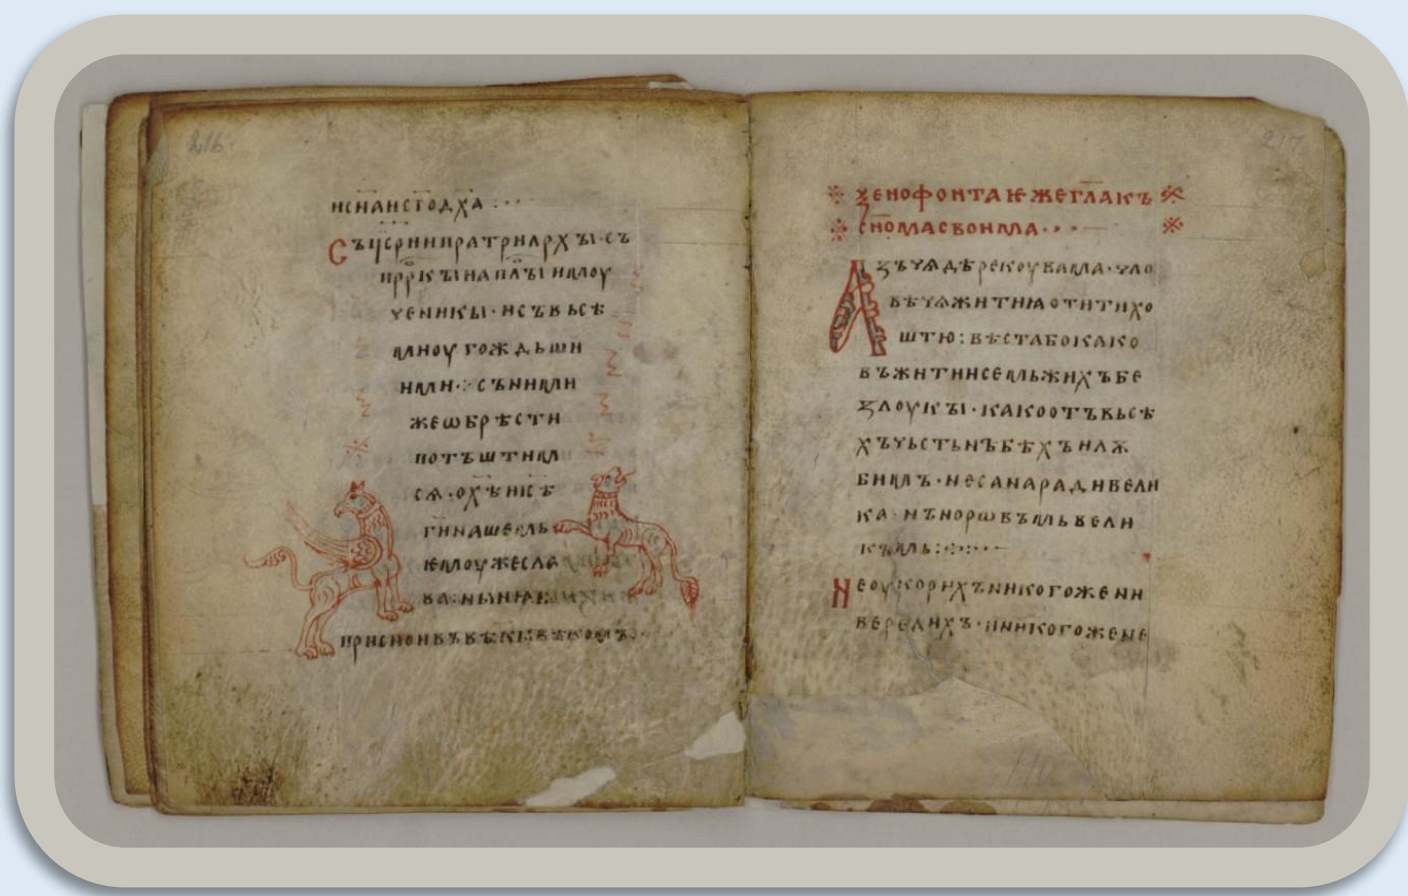 216.
и сꙑ и с҃тоꙋ д҃ха :···
Съ ц҃срии патриархꙑ· съ
пр҃ркꙑ и ап҃лꙑ и моу
ченикꙑ· и съ вьсѣ
ми оугождьши
ими·:· съ ними
же ѡбрѣсти
потъштим
сѧ· о х҃ѣ и҃сѣ
г҃и нашемь
ѥмоуже сла
ва· нꙑнѣ
присно и въ вѣкꙑ вѣкомъ:·
217
※ Ѯенофонта ѥже г҃ла къ ※
※ с҃нома своима··· ※
Азъ чѧдѣ рекоу вама· чло
вѣчѧ жития отитихо
штю: вѣста бо како
въ житии семь жихъ бе
злоукꙑ· како отъ вьсѣ
хъ чьстьнъ бѣхъ и лѫ
бимъ· не сана ради вели
ка· нъ норѡвъмь вели
къмь:·:···—
Не оукорихъ никогоже ни
вередихъ· ни никогоже не